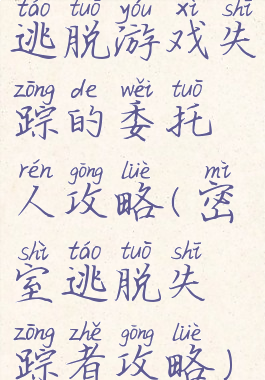 táo tuō yóu xì shī
逃脱游戏失
zōng de wěi tuō
踪的委托
rén gōng lüè mì
人攻略(密
shì táo tuō shī
室逃脱失
zōng zhě gōng lüè
踪者攻略)